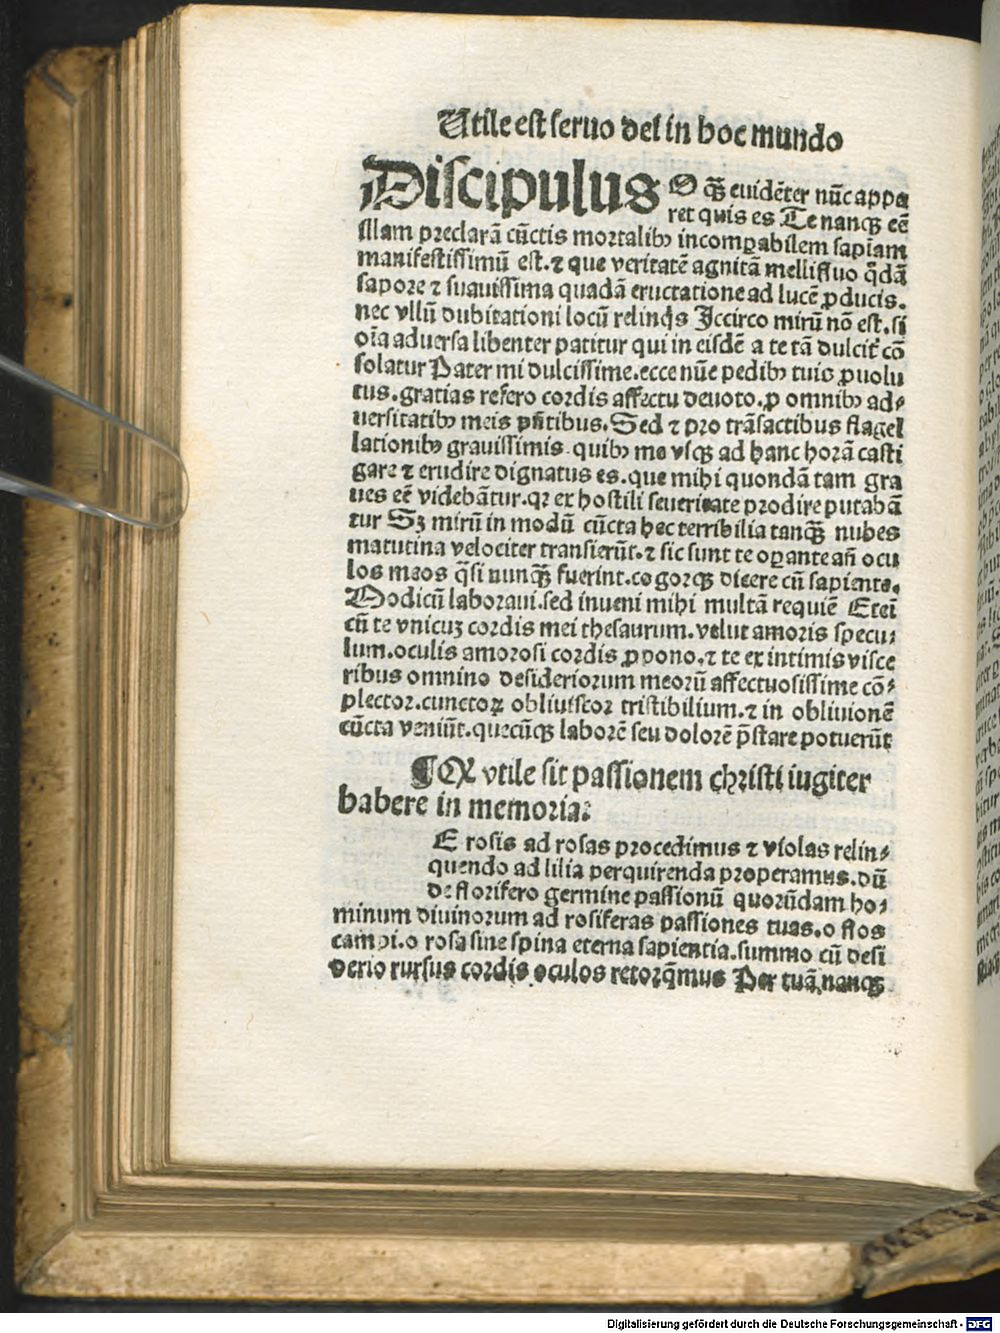 Utile est seruo dei in hoc mundo
Discipulus O q̃ȝ euidẽter nũc appa
ret quis es Te nanqȝ eẽ
illam preclarã cũctis mortalibꝰ incomꝑabilem sapiam
manifestissimũ est. ⁊ que veritatẽ agnitã mellifluo q̃dã
sapore ⁊ suauissima quadã eructatione ad lucẽ ꝓducis.
nec vllũ dubitationi locũ relinq̃s Iccirco mirũ nõ est. si
oĩa aduersa libenter patitur qui in eisdẽ a te tã dulciť cõ
solatur Pater mi dulcissime. ecce nũc pedibꝰ tuis ꝓuolu
tus. gratias refero cordis affectu deuoto. ꝓ omnibꝰ ad⸗
uersitatibꝰ meis p̃ñtibus. Sed ⁊ pro trãsactibus flagel
lationibꝰ grauissimis. quibꝰ me vsqȝ ad hanc horã casti
gare ⁊ erudire dignatus es. que mihi quondã tam gra
ues eẽ videbãtur. qꝛ ex hostili seueritate prodire putabã
tur Sȝ mirũ in modũ cũcta hec terribilia tanqȝ̃ nubes
matutina velociter transierũt. ⁊ sic sunt te oꝑante añ ocu
los meos q̃si nunqȝ̃ fuerint. cogorqȝ dicere cũ sapiente.
Modicũ laboraui. sed inueni mihi multã requiẽ Eteĩ
cũ te vnicuȝ cordis mei thesaurum. velut amoris specu⸗
lum. oculis amorosi cordis ꝓpono. ⁊ te ex intimis visce
ribus omnino desideriorum meorũ affectuosissime cõ⸗
plector. cunctoꝝ obliuiscor tristibilium. ⁊ in obliuionẽ
cũcta veniũt. quecũqȝ laborẽ seu dolorẽ p̃stare potuerũt
¶ Qꝙ vtile sit passionem christi iugiter
habere in memoria:
E rosis ad rosas procedimus ⁊ violas relin⸗
quendo ad lilia perquirenda properamus. dũ
de florifero germine passionũ quorũdam ho⸗
minum diuinorum ad rosiferas passiones tuas. o flos
campi. o rosa sine spina eterna sapientia. summo cũ desi
derio rursus cordis oculos retorq̃mus Per tuã nanqȝ
Digitalisierung gefördert durch die Deutsche Forschungsgemeinschaft - DFG